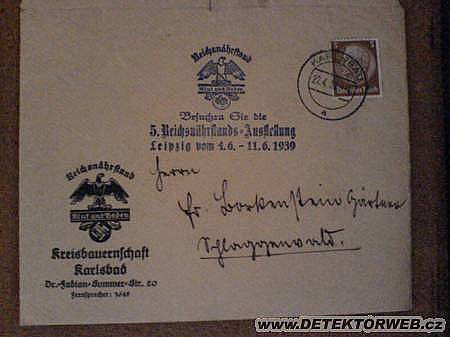 Reichsnährstand
Blut und Boden
Besuchen Sie die
5. Reichsnährstands-Ausstellung
Leipzig vom 4.6. - 11.6. 1939
KARLSBAD
a
Herrn
Fr. Borkenstein Gärtner
Schlaggenwald.
Reichsnährstand
Blut und Boden
Kreisbauernschaft
Karlsbad
Dr.-Fabian-Summer-Str. 20
Fernsprecher:
WWW.DETEKTORWEB.CZ